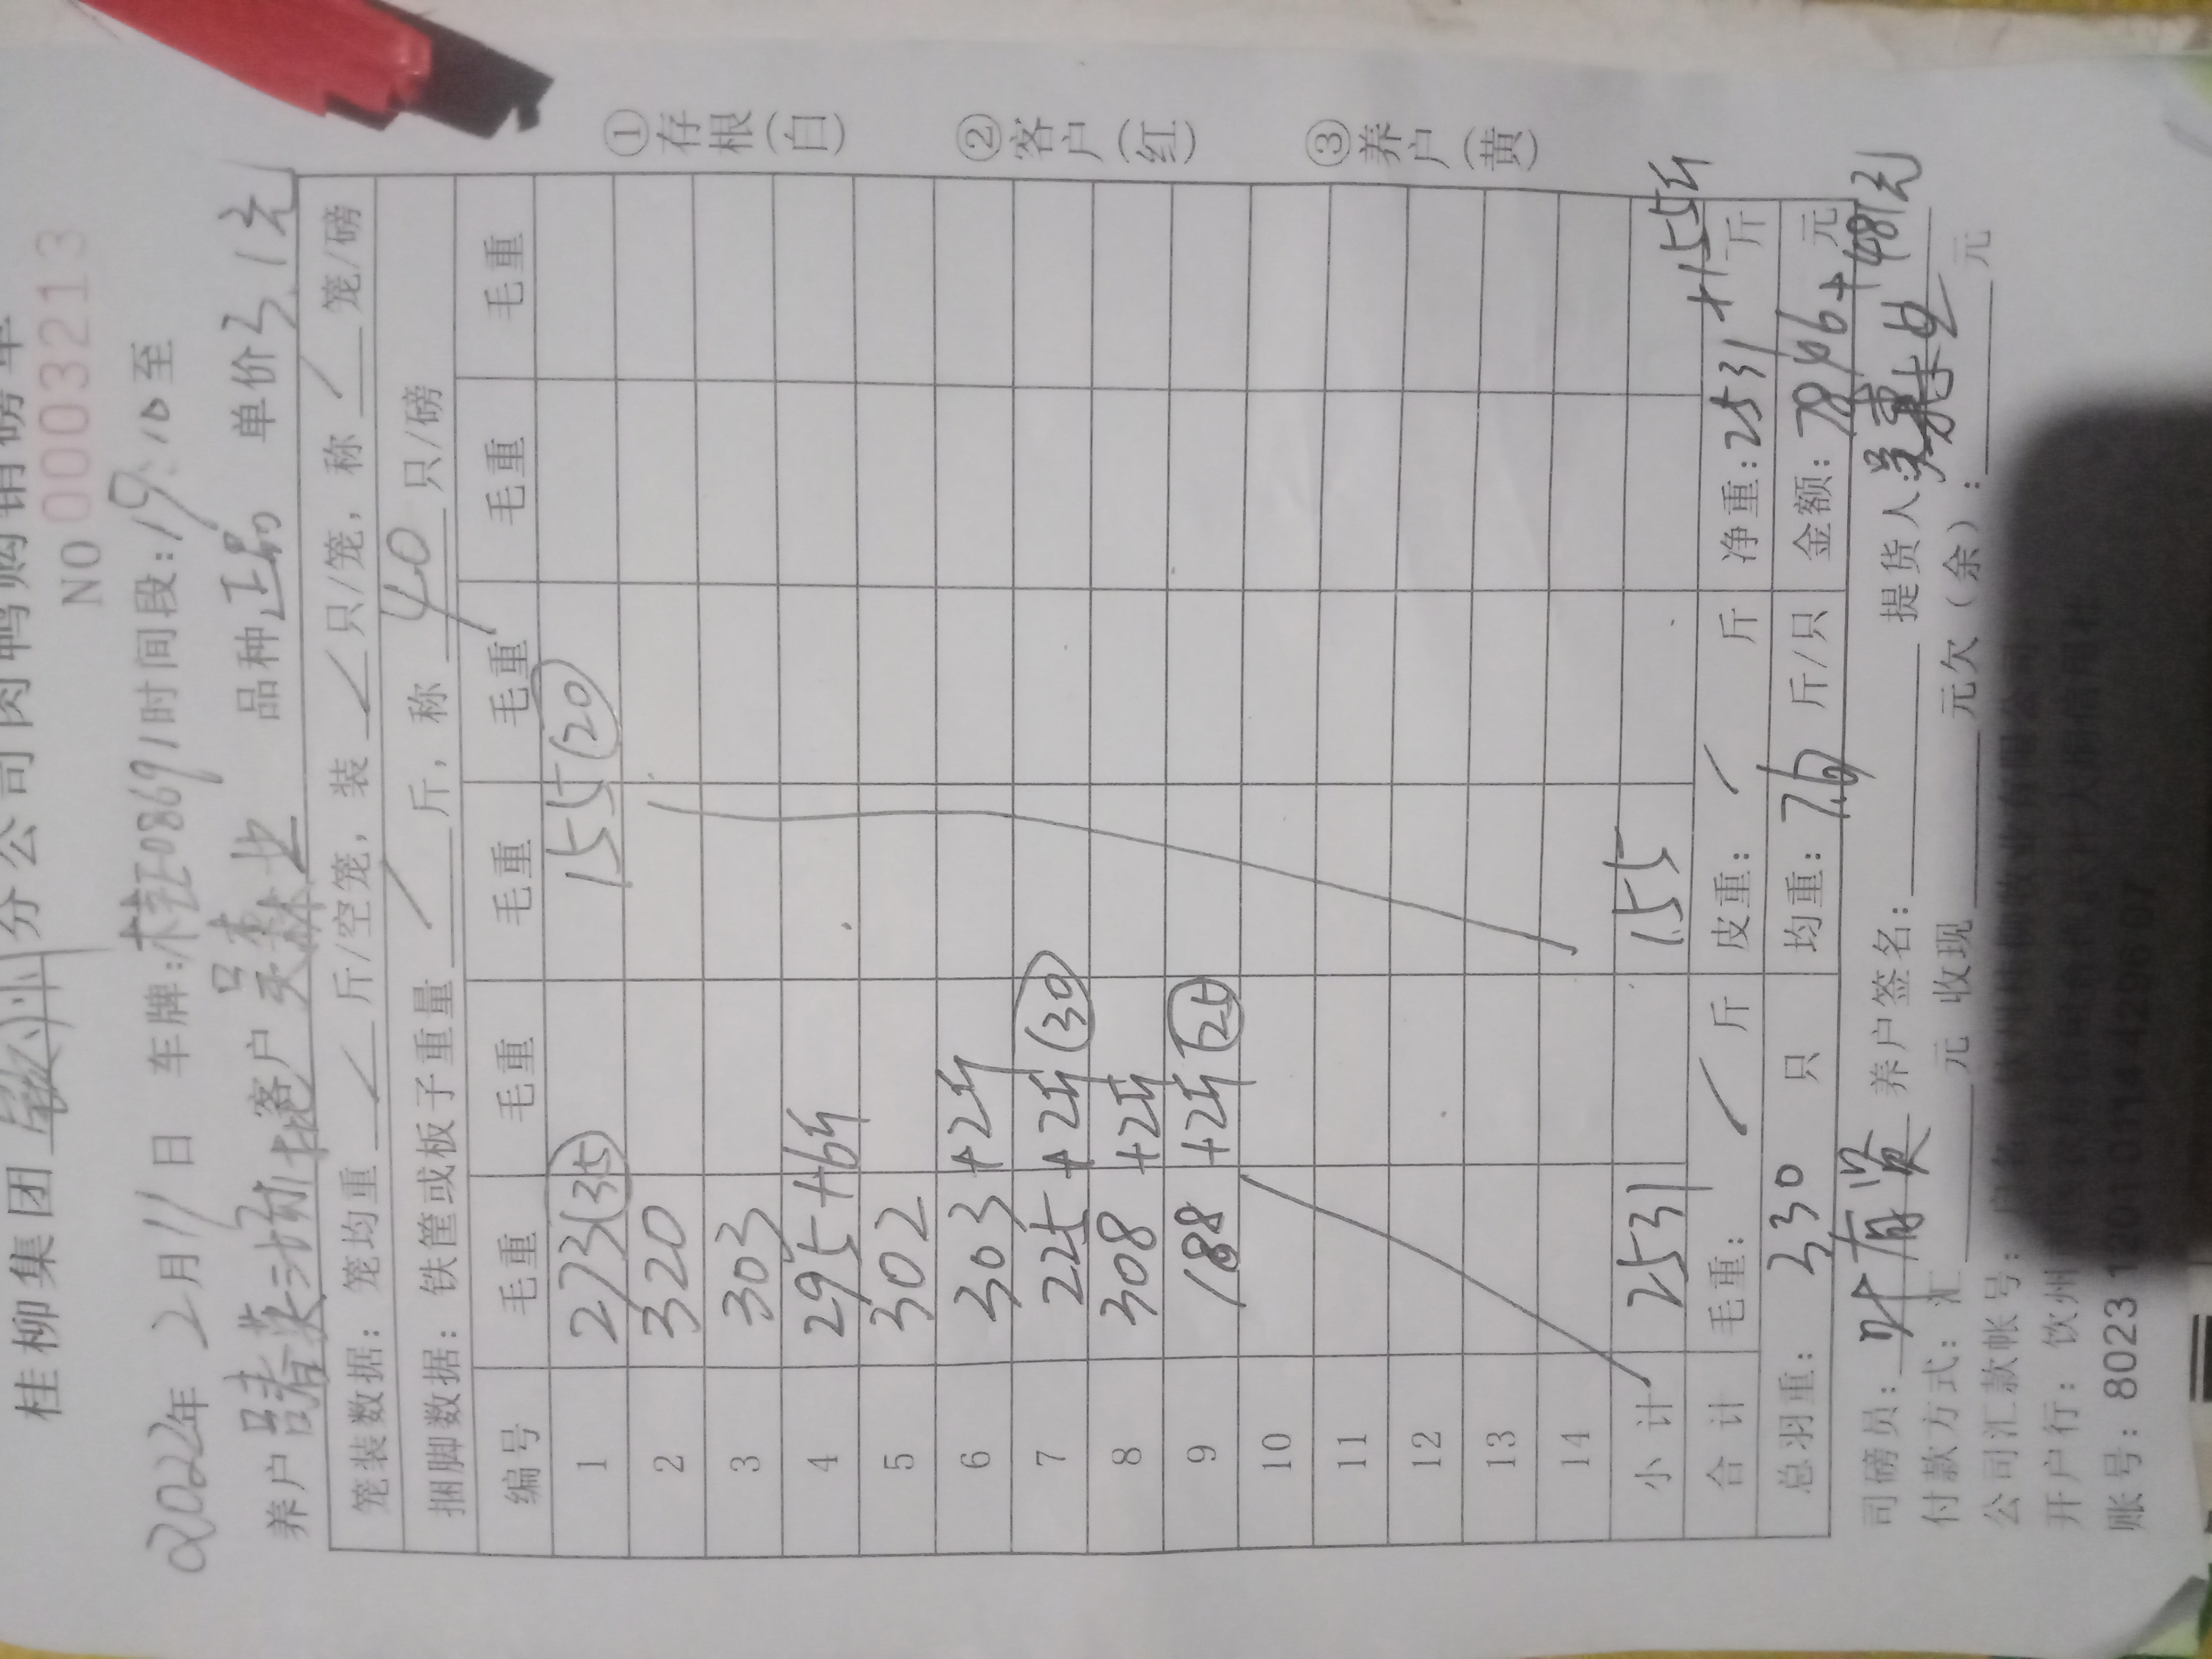 桂柳集团 钦州 分公司肉鸭购销磅单
NO 0003213
2022年 2月11日 车牌:桂E0869 时间段:19:10至
养户 客户 吴森业 品种 正品 单价 3.1元
笼装数据: 笼均重 / 斤/空笼, 装 / 只/笼, 称 / 笼/磅
捆脚数据: 铁筐或板子重量 / 斤, 称 40 只/磅
编号 毛重 毛重 毛重 毛重 毛重 毛重
1 273(35) 155(20)
2 320
3 303
4 295+6斤
5 302
6 303+2斤
7 225+2斤(30)
8 308+2斤
9 188+2斤(25)
10
11
12
13
14
小计 2531 155
合计 毛重: / 斤 皮重: / 斤 净重:2531+155斤 斤
总羽重: 330 只 均重: 7.6 斤/只 金额: 7846+481元 元
司磅员: 叶有贤 养户签名: 提货人:吴森业
付款方式: 汇 元 收现 元欠(余): 元
公司汇款帐号:
开户行: 钦州
账号: 8023
①存根(白)
②客户(红)
③养户(黄)